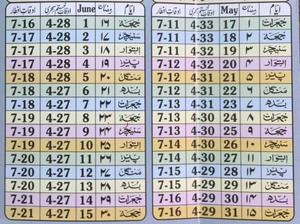 ایام May اوقات سحری اوقات افطار
جمعرات ۱ 17 4-33 7-11
جمعہ ۲ 18 4-33 7-11
سنیچر ۳ 19 4-32 7-11
اتوار ۴ 20 4-32 7-12
پیر ۵ 21 4-32 7-12
منگل ۶ 22 4-31 7-12
بدھ ۷ 23 4-31 7-13
جمعرات ۸ 24 4-31 7-13
جمعہ ۹ 25 4-30 7-13
سنیچر ۱۰ 26 4-30 7-14
اتوار ۱۱ 27 4-30 7-14
پیر ۱۲ 28 4-29 7-15
منگل ۱۳ 29 4-29 7-15
بدھ ۱۴ 30 4-29 7-15
جمعرات ۱۵ 31 4-29 7-16
ایام June اوقات سحری اوقات افطار
جمعہ ۱۶ 1 4-28 7-16
سنیچر ۱۷ 2 4-28 7-17
اتوار ۱۸ 3 4-28 7-17
پیر ۱۹ 4 4-27 7-18
منگل ۲۰ 5 4-27 7-18
بدھ ۲۱ 6 4-27 7-18
جمعرات ۲۲ 7 4-27 7-18
جمعہ ۲۳ 8 4-27 7-19
سنیچر ۲۴ 9 4-27 7-19
اتوار ۲۵ 10 4-27 7-19
پیر ۲۶ 11 4-27 7-20
منگل ۲۷ 12 4-27 7-20
بدھ ۲۸ 13 4-27 7-20
جمعرات ۲۹ 14 4-27 7-21
جمعہ ۳۰ 15 4-27 7-21